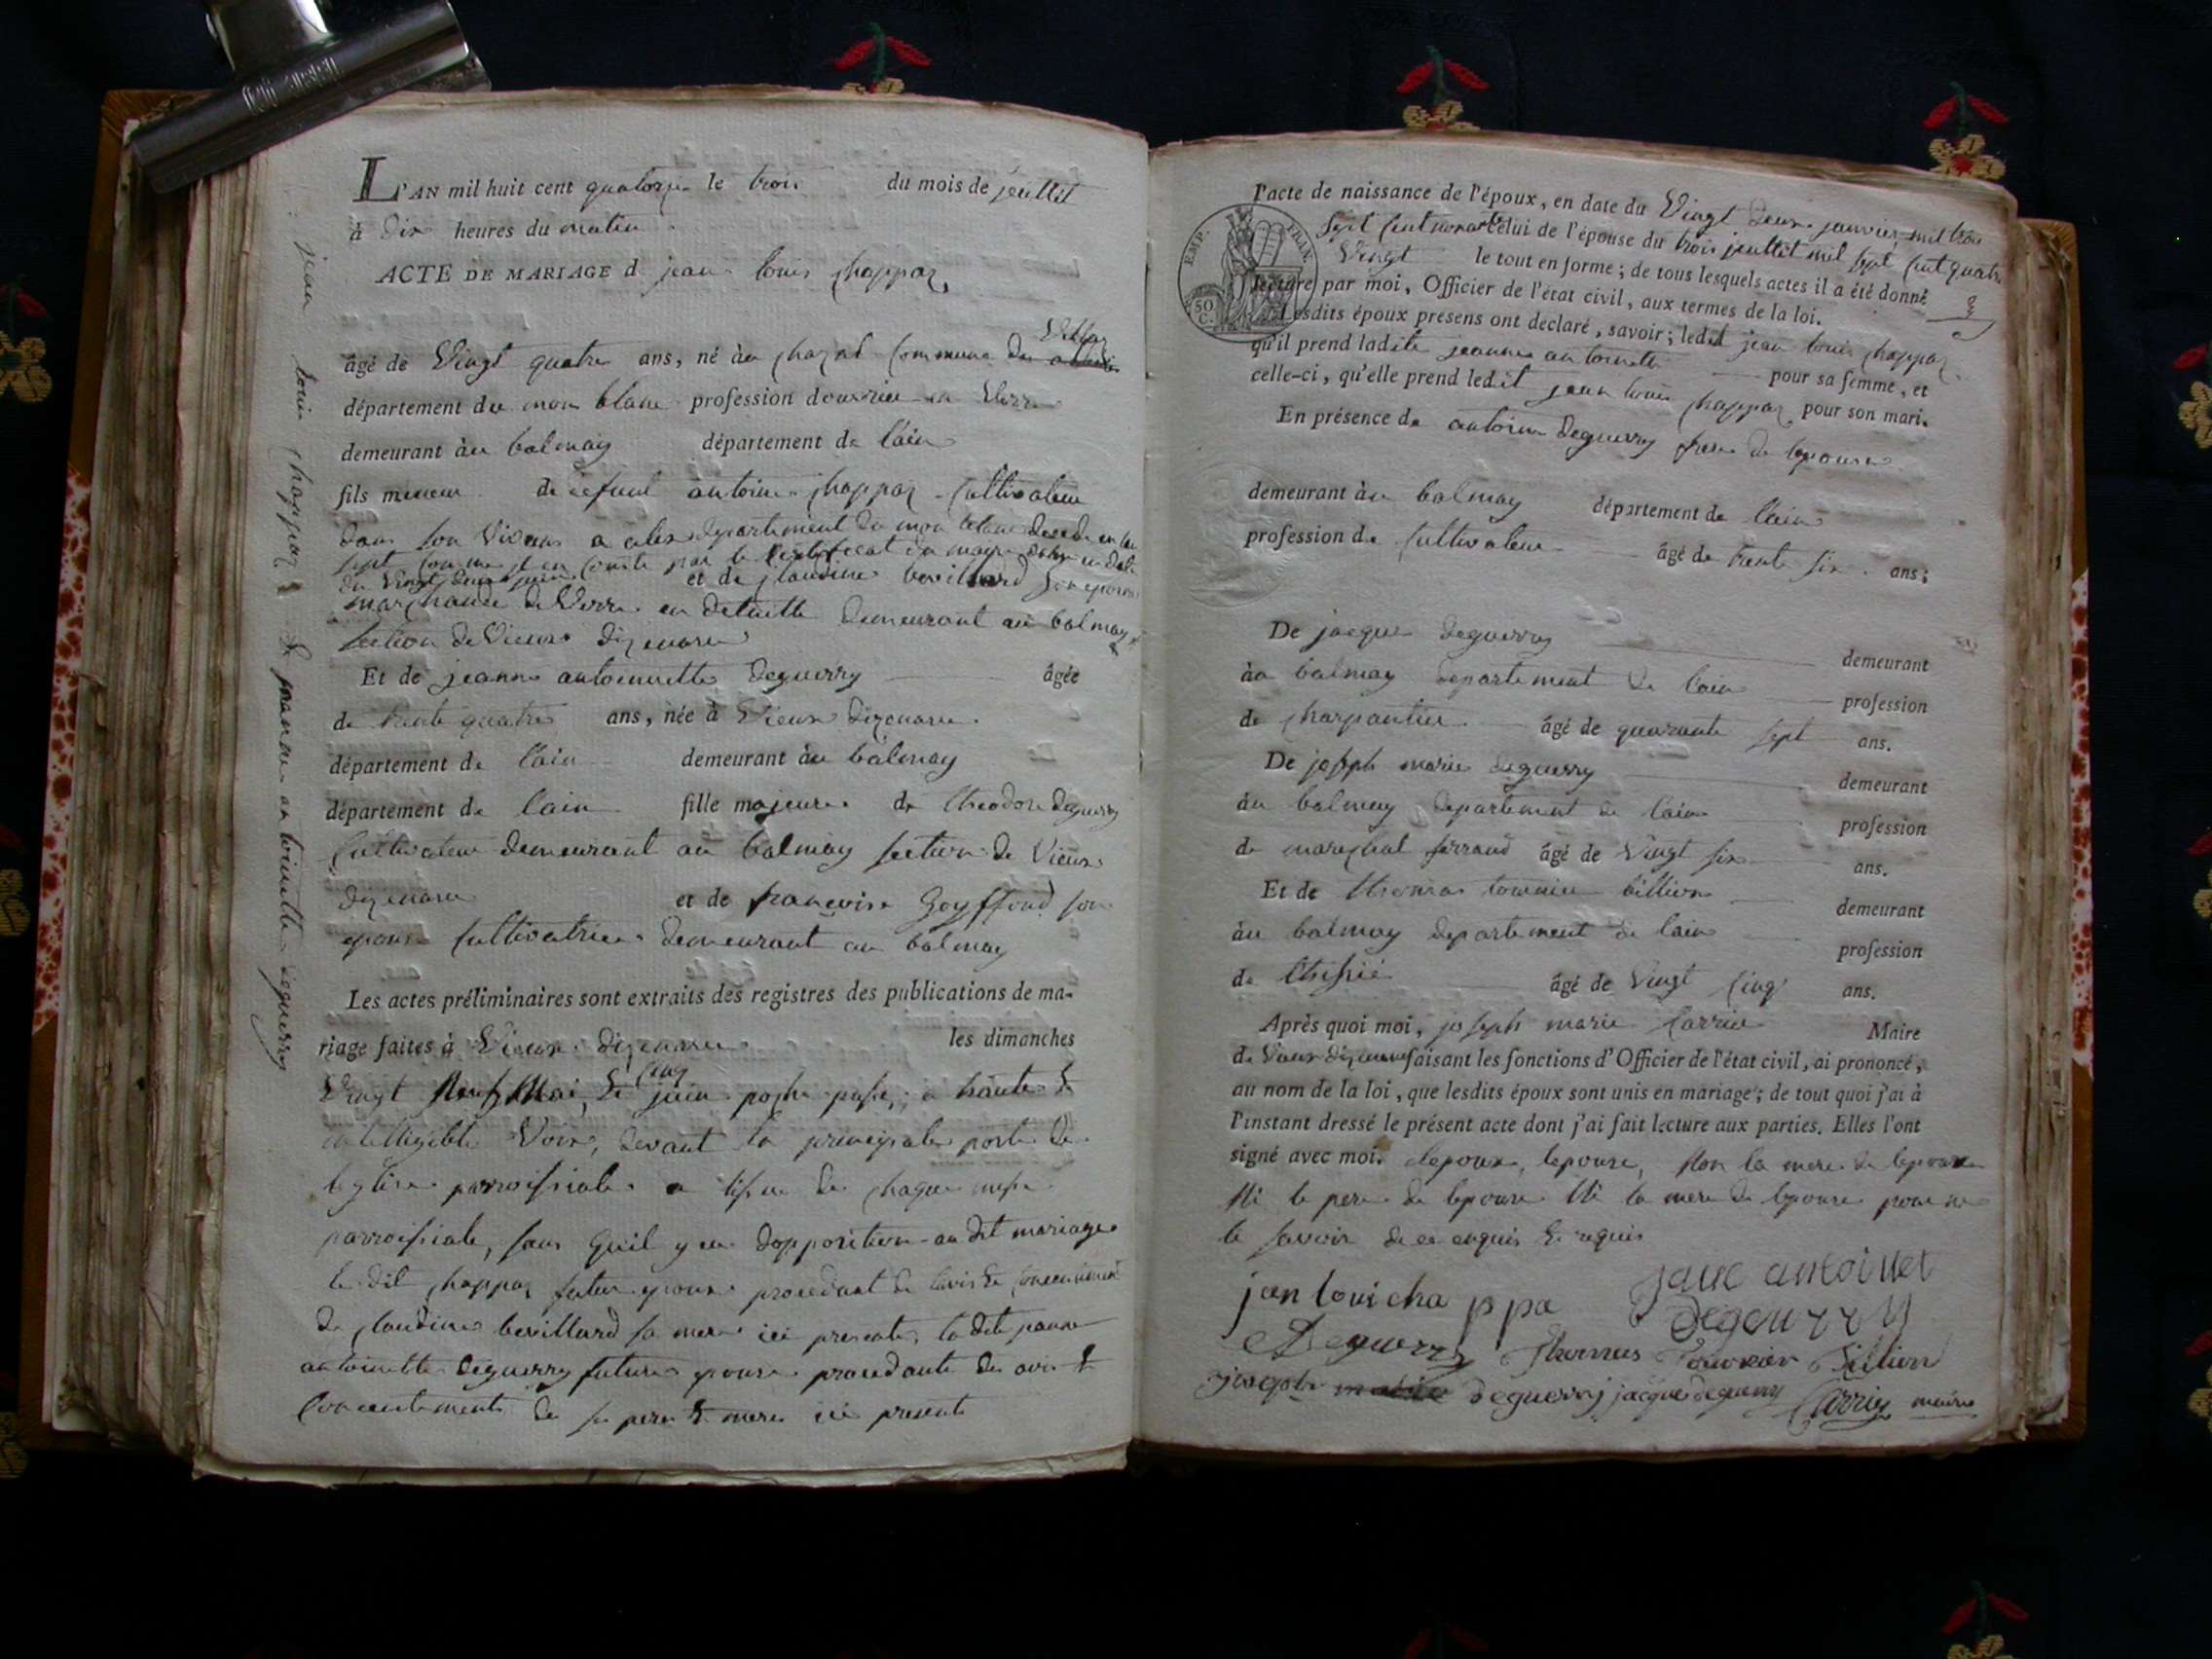 L'AN mil huit cent quatorze le trois du mois de jeuillit
à dix heures du matin
ACTE DE MARIAGE d jean louis chappaz
Villar
âgé de Vingt quatre ans, né àu chazal Commune des
département du mon blanc profession douvrier en Verre
demeurant àu balmay département de lain
fils mineur de defunt antoine chappaz Cultivateur
dans son Vivant a département du mon blanc decede en lan
sept comme il en conste par le Certificat du maire en date
du Vingt deux juin et de claudine bouillard son epouse
marchande de Verre en detaille demeurant au balmay
section de Vieux dizenave
Et de jeanne antoinette deguerry âgée
de trente quatre ans, née à Vieux dizenave
département de lain demeurant àu balmay
département de lain fille majeure de theodore deguerry
Cultivateur demeurant au balmay section de Vieux
dizenave et de francoise Goyffond son
epouse Cultivatrice demeurant au balmay
Les actes préliminaires sont extraits des registres des publications de ma-
riage faites à Vieux dizenave les dimanches
cinq
Vingt Neuf Mai, & juin passé, a haute &
intelligible Voix, devant la principale porte de
leglise parroissiale a lissue de chaque messe
parroissiale, sans quil y eu dopposition au dit mariage
le dit chappaz futur epoux procedant de lavis & consentement
de claudine bouillard sa mere ici presente, la dite jeanne
antoinette deguerry future epouse procedante des avis &
Concentements de ses pere & mere ici present
jean louis chappaz & jeanne antoinette deguerry
l'acte de naissance de l'époux, en date du Vingt deux janvier mil
EMP. FRAN.
50 C.
sept Cent nonante celui de l'épouse du trois jeuillit mil sept Cent quatre
Vingt le tout en forme; de tous lesquels actes il a été donné
lecture par moi, Officier de l'état civil, aux termes de la loi.
Lesdits époux présens ont declaré, savoir; ledit jean louis chappaz
qu'il prend ladite jeanne antoinette pour sa femme, et
celle-ci, qu'elle prend ledit jean louis chappaz pour son mari.
En présence de antoine deguerry frere de lepouse
demeurant àu balmay département de lain
profession de Cultivateur âgé de trente six ans;
De jacque deguerry demeurant
àu balmay departement de lain profession
de charpantier âgé de quarante sept ans.
De joseph marie deguerry demeurant
àu balmay departement de lain profession
de marechal ferrand âgé de Vingt six ans.
Et de thomas tournier billion demeurant
àu balmay departement de lain profession
de âgé de Vingt Cinq ans.
Après quoi moi, joseph marie Carrier Maire
de Vieux dizenave faisant les fonctions d'Officier de l'état civil, ai prononcé,
au nom de la loi, que lesdits époux sont unis en mariage; de tout quoi j'ai à
l'instant dressé le présent acte dont j'ai fait lecture aux parties. Elles l'ont
signé avec moi. lepoux, lepouse, Non la mere de lepoux
Ni le pere de lepouse Ni la mere de lepouse pour ne
le savoir de ce enquis & requis
jan loui cha ppa jane antoinet
degeurry
Deguerry Thomas Tournier Billion
joseph marie deguerry jacque deguerry Carrier maire